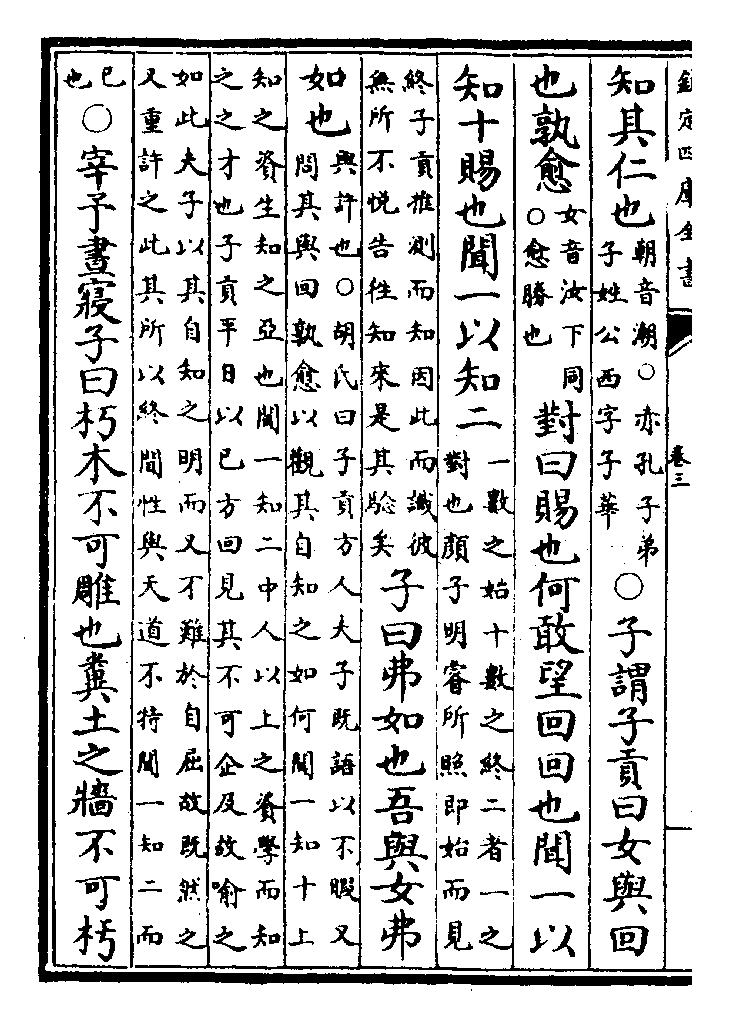 欽定四庫全書
卷三
知其仁也朝音潮○亦孔子弟
子姓公西字子華○子謂子貢曰女與回
也孰愈女音汝下同
○愈勝也對曰賜也何敢望回回也聞一以
知十賜也聞一以知二一數之始十數之終二者一之
對也顏子明睿所照即始而見
終子貢推測而知因此而識彼
無所不悅告徃知來是其驗矣子曰弗如也吾與女弗
如也與許也○胡氏曰子貢方人夫子既語以不暇又
問其與回孰愈以觀其自知之如何聞一知十上
知之資生知之亞也聞一知二中人以上之資學而知
之之才也子貢平日以已方回見其不可企及故喻之
如此夫子以其自知之明而又不難於自屈故既然之
又重許之此其所以終聞性與天道不特聞一知二而
已
也○宰予晝寢子曰朽木不可雕也糞土之牆不可杇